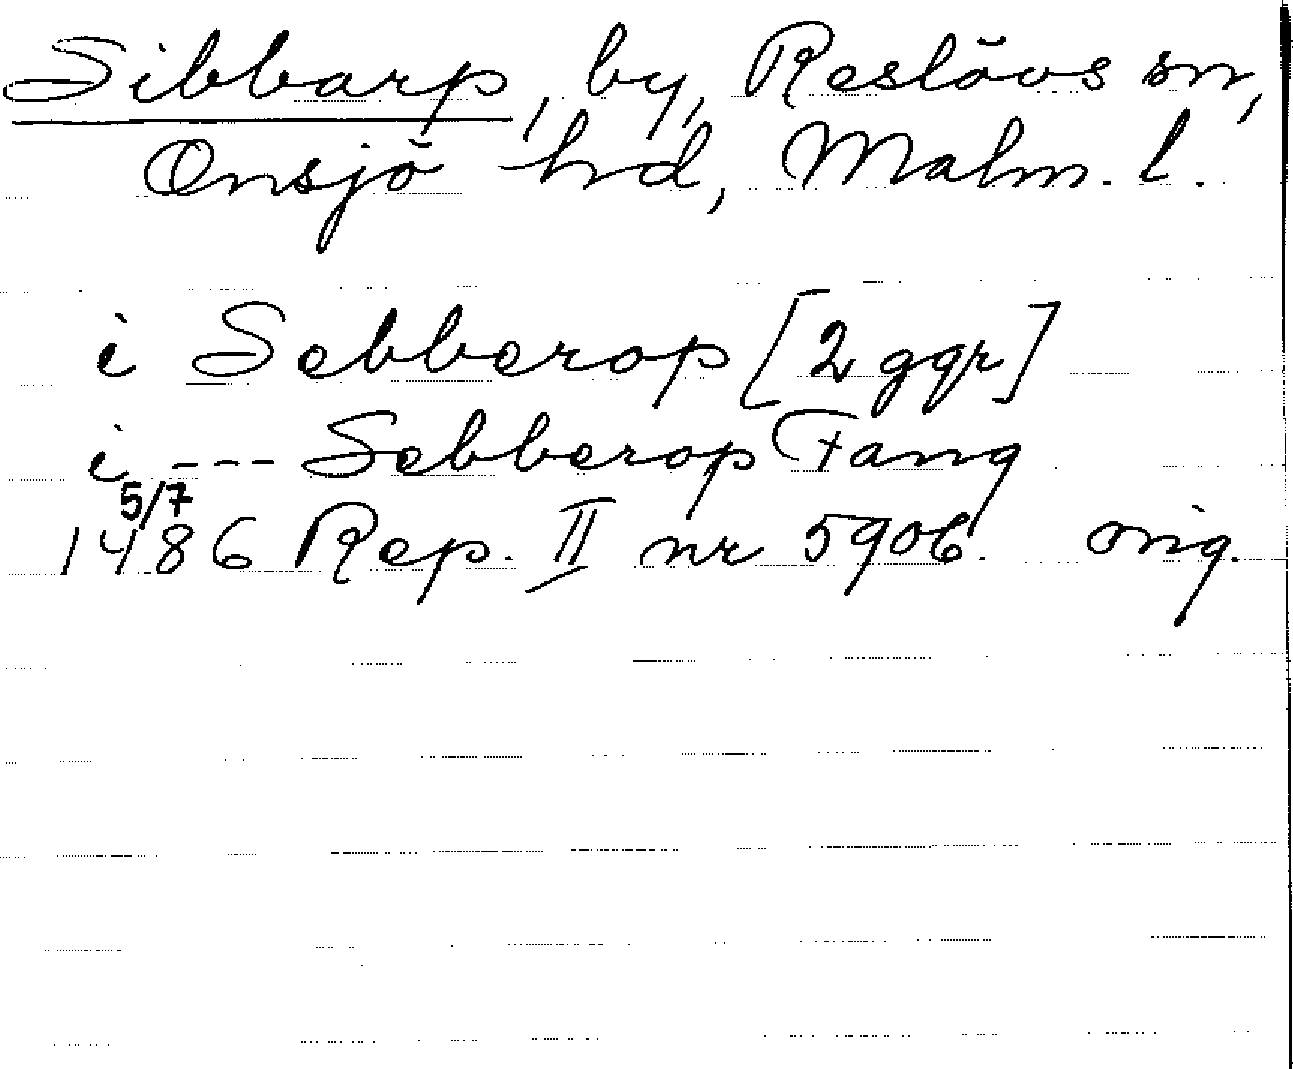 Sibbarp, by, Reslövs sn,
Onsjö hd, Malm. l.
i Sebberop [2 ggr]
i --- Sebberop Fang
5/7
1486 Rep. II nr 5906. orig.